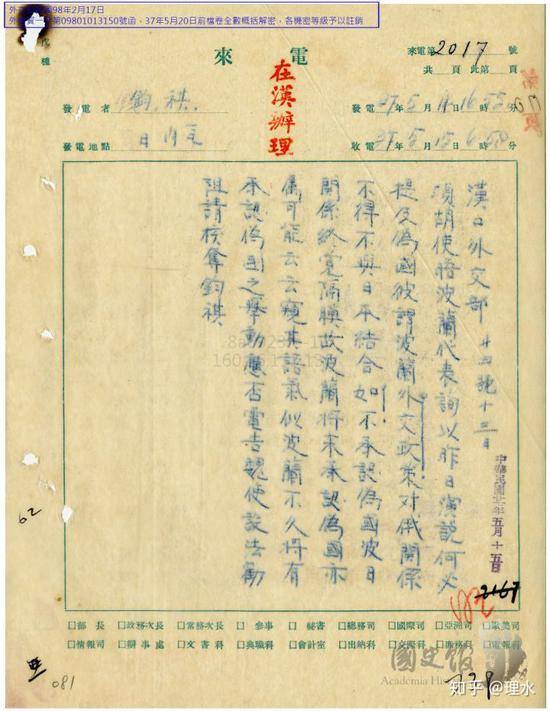 外 98年2月17日
第09801013150號函，37年5月20日前檔卷全數概括解密，各機密等級予以註銷
來電
來電第2017號
共 頁 此第 頁
在漢辦理
發電者 鈞祺
發電地點 日內瓦
發電 27年5月14日16時55分
收電 27年5月15日6時50分
漢口外交部 廿四號十三日
湯胡使晤波蘭代表詢以昨日演說何必
提及偽國彼謂波蘭外交政策對俄關係
不得不與日本結合如不承認偽國波日
關係終覺隔膜故波蘭將來承認偽國亦
屬可能云云窺其語氣似波蘭不久將有
承認偽國之舉動應否電告魏使設法勸
阻請核奪鈞祺
中華民國廿七年五月十五日
2167
□部長 □政務次長 □常務次長 □參事 □秘書 □總務司 □國際司 □亞洲司 □歐美司
□情報司 □辦事處 □文書科 □典職科 □會計室 □出納科 □交際科 □庶務科 □電報科
62
081
國史館
Academia His
知乎 @理水